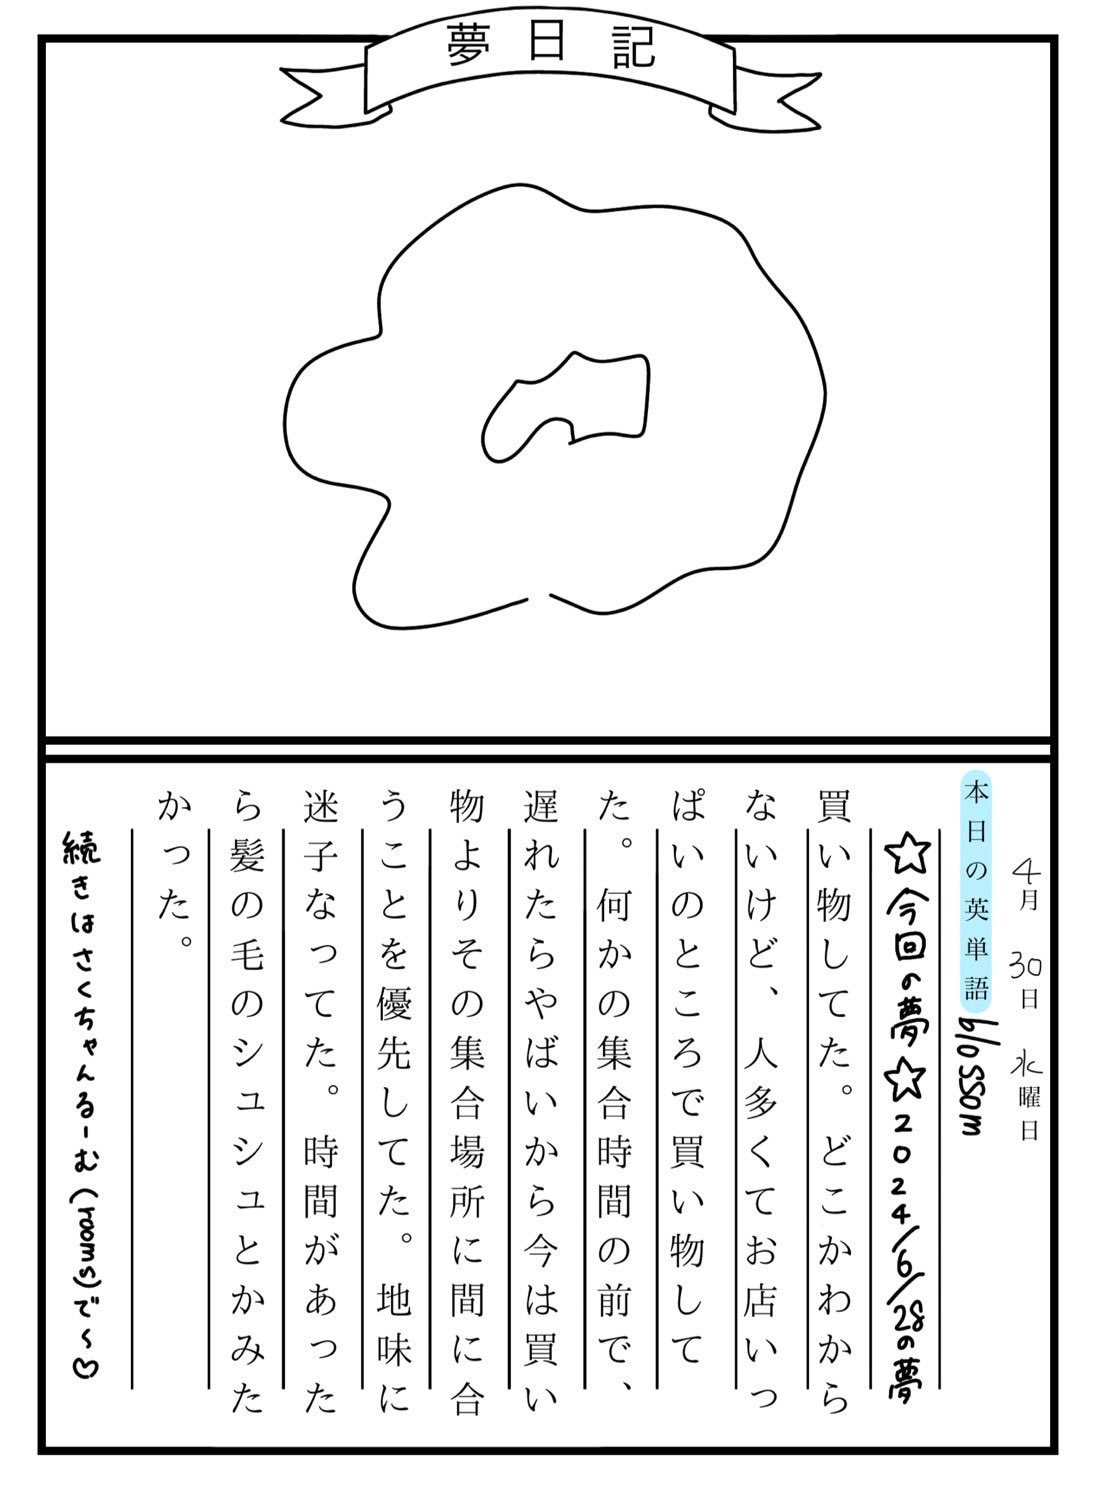 夢日記
4月 30日 水曜日
本日の英単語 blossom
☆今回の夢☆2024/6/28の夢
買い物してた。どこかわから
ないけど、人多くてお店いっ
ぱいのところで買い物して
た。何かの集合時間の前で、
遅れたらやばいから今は買い
物よりその集合場所に間に合
うことを優先してた。地味に
迷子なってた。時間があった
ら髪の毛のシュシュとかみた
かった。
続きはさくちゃんるーむ(rooms)で〜♡